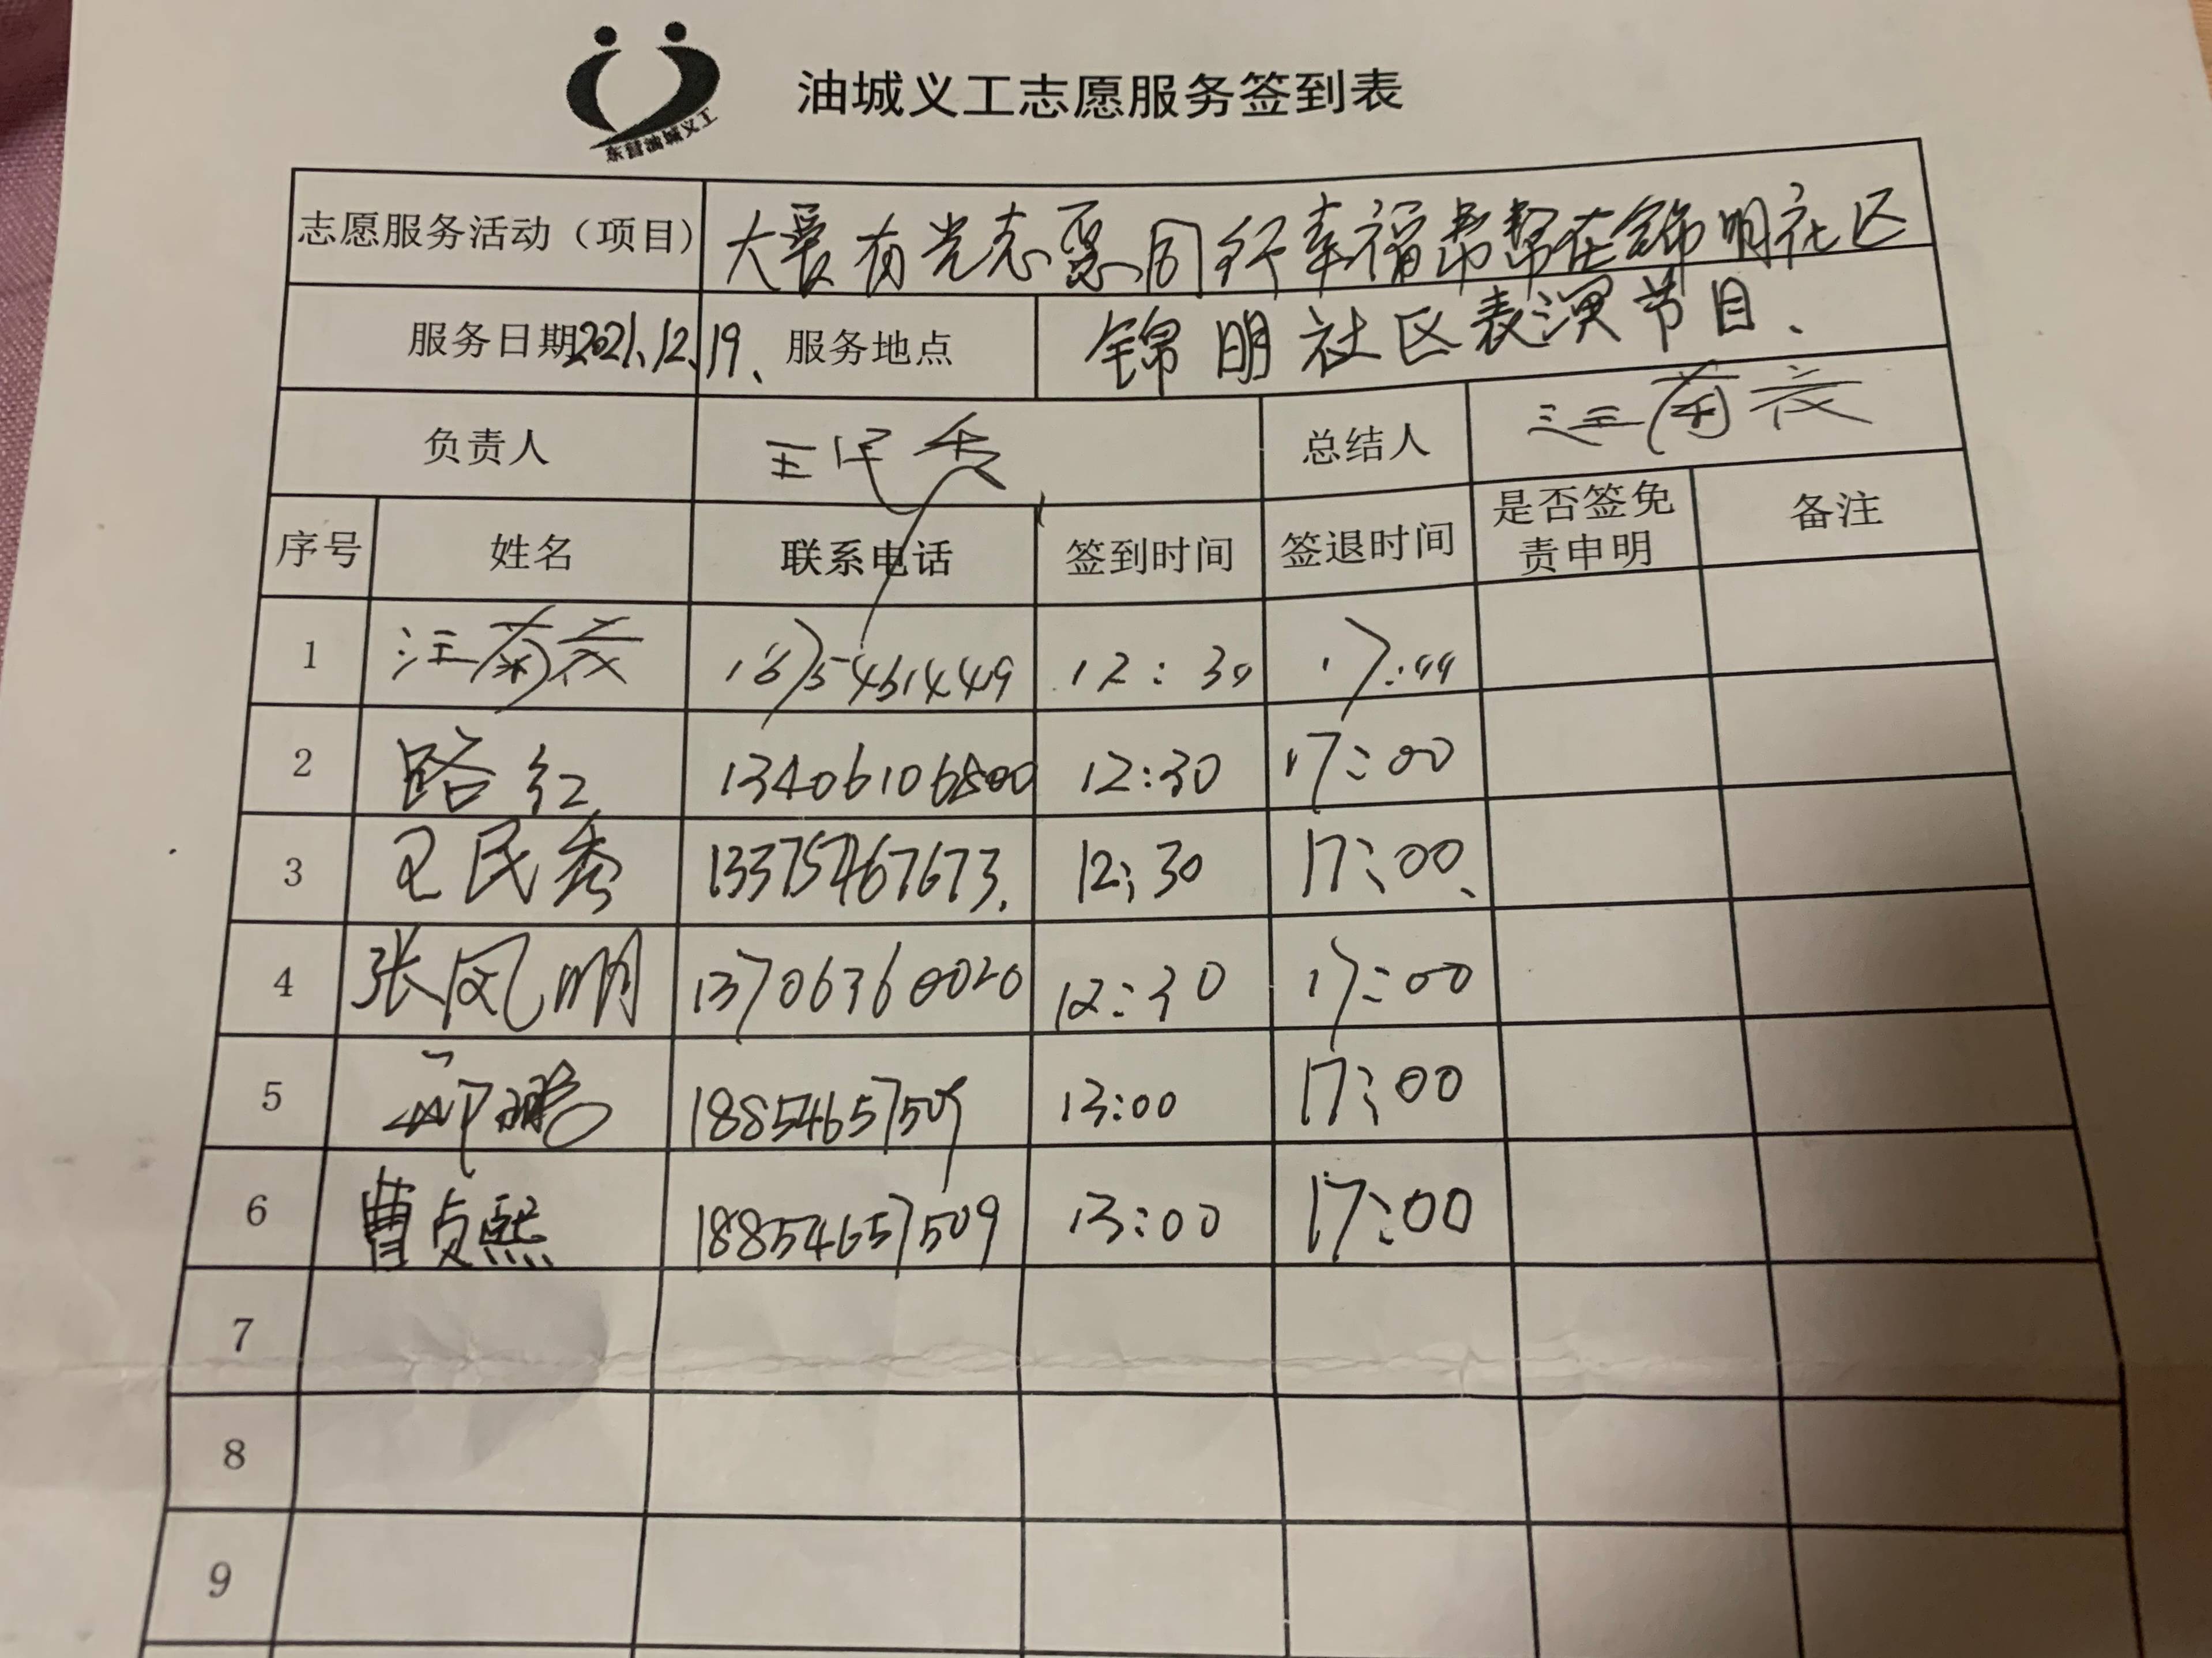 东营油城义工
油城义工志愿服务签到表
志愿服务活动（项目） 大爱有光志愿同行幸福帮帮在锦明社区
服务日期 2021.12.19、 服务地点 锦明社区表演节目、
负责人 王民秀 总结人 汪菊
序号 姓名 联系电话 签到时间 签退时间 是否签免责申明 备注
1 汪菊 12:30
2 路红 13406106800 12:30 17:00
3 王民秀 13375467673. 12:30 17:00、
4 张凤明 13706360020 12:30 17:00
5 鹏 18854657509 13:00 17:00
6 曹贞熙 18854657509 13:00 17:00
7
8
9